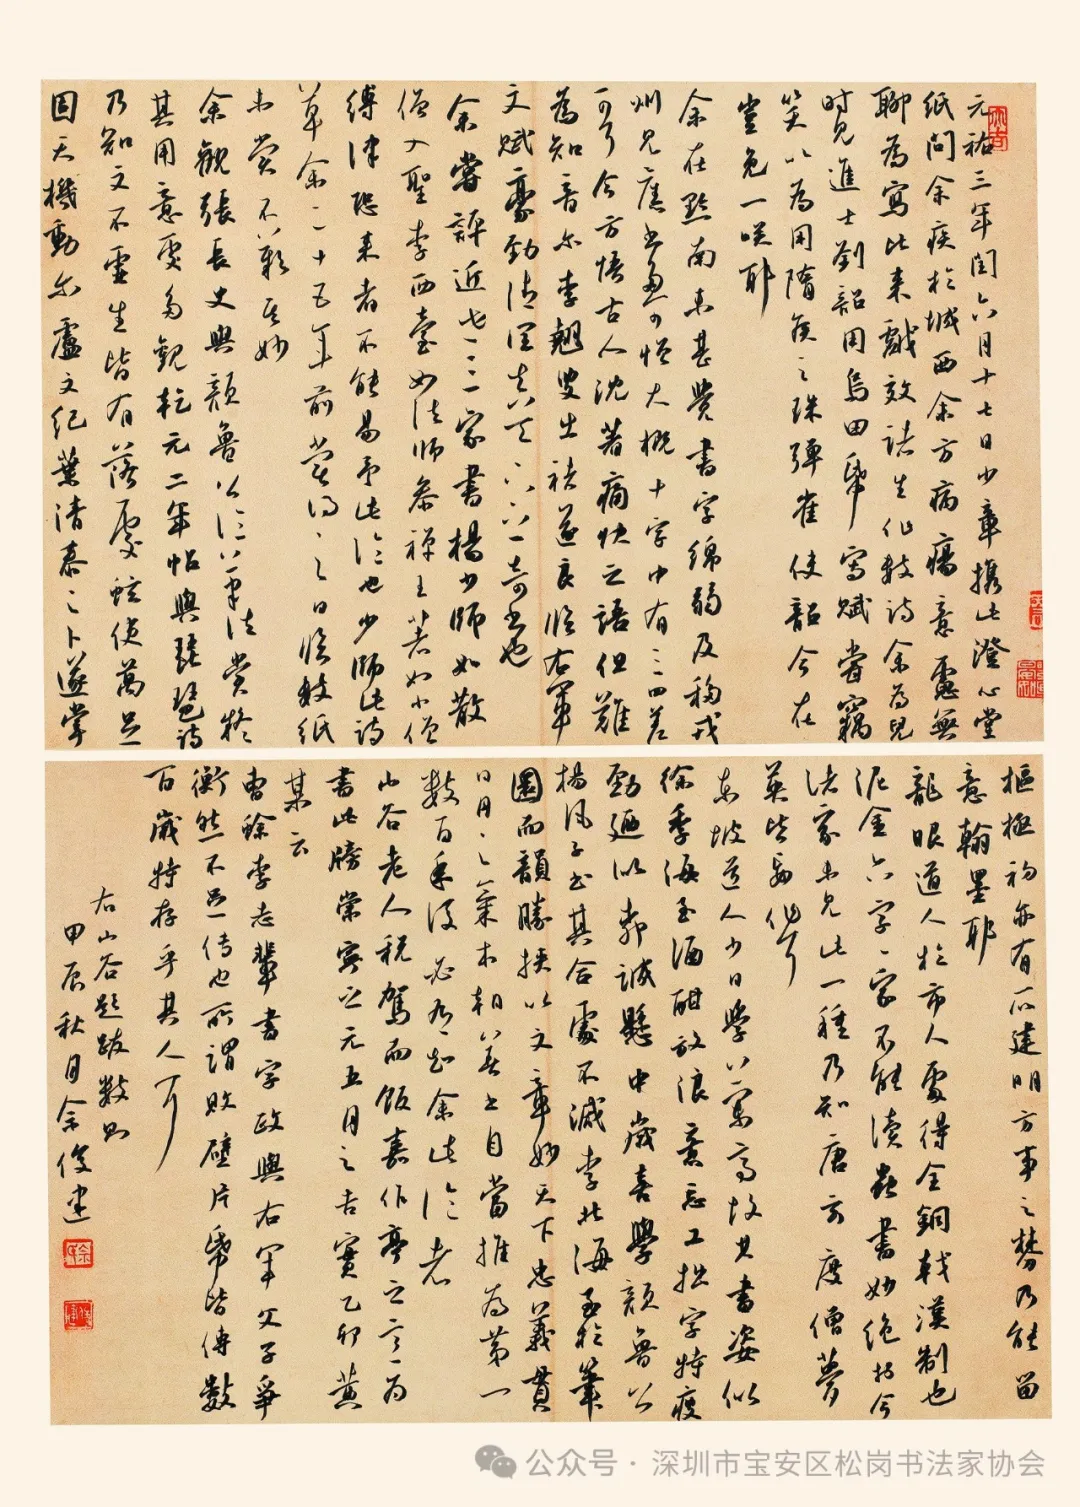 元祐三年閏六月十七日少章攜此澄心堂
紙問余疾於城西余方病瘍意慮無
聊為寫比來戲效諸生作數詩余為兒
時見進士劉韶用烏田紙寫賦嘗竊
笑以為用隋侯之珠彈雀使韶今在
豈免一咲耶
余在黔南未甚覺書字綿弱及移戎
州見舊書多可憎大概十字中有三四差
可耳今方悟古人沈著痛快之語但難
為知音爾李翹叟出褚遂良臨右軍
文賦豪勁清潤真天下之奇書也
余嘗評近世三家書楊少師如散
僧入聖李西臺如法師參禪王著如小僧
縛律恐來者不能易予此論也少師此詩
草余二十五年前嘗得之日臨數紙
未嘗不歎其妙
余觀張長史與顏魯公論八筆法嘗疑
其用意處多觀乾元二年帖與琵琶詩
乃知文不虛生皆有落處蛟使萬足
固天機動爾盧文紀葉清泰之卜遂掌
樞極初亦有所建明方事之勞乃能留
意翰墨耶
龍眼道人於市人處得全銅戟漢制也
泥金六字字家不能讀蟲書妙絕於今
諸家未見此一種乃知唐玄度僧夢
英皆妄作耳
東坡道人少日學蘭亭故其書姿似
徐季海至酒酣放浪意忘工拙字特瘦
勁迺似柳誠懸中歲喜學顏魯公
楊風子書其合處不減李北海至於筆
圓而韻勝挾以文章妙天下忠義貫
日月之氣本朝善書自當推為第一
數百年後必有知余此論者
山谷老人稅駕而飯嘉作亭之意為
書此牓崇寧之元五月之吉實乙卯黃
某云
曹蜍李志輩書字政與右軍父子爭
衡然不足傳也所謂敗壁片紙皆傳數
百歲特存乎其人耳
右山谷題跋數則
甲辰秋月余俊建
公众号·深圳市宝安区松岗书法家协会